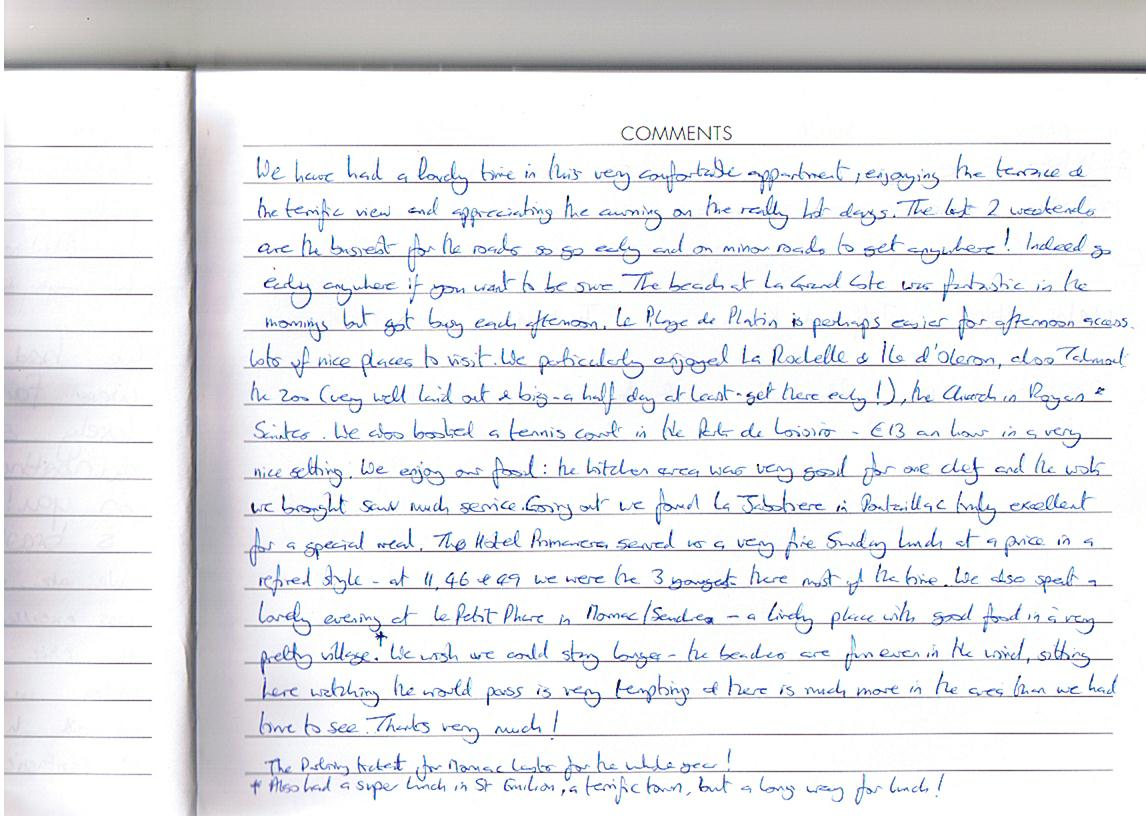 COMMENTS
We have had a lovely time in this very comfortable appartment, enjoying the terrace &
the terrific view and appreciating the awning on the really hot days. The last 2 weekends
are the busiest for the roads so go early and on minor roads to get anywhere! Indeed go
early anywhere if you want to be sure. The beach at La Grand Cote was fantastic in the
mornings but got busy each afternoon. Le Plage de Platin is perhaps easier for afternoon access.
Lots of nice places to visit. We particularly enjoyed La Rochelle & Ile d'Oleron, also Talmont
the zoo (very well laid out & big - a half day at least - get there early!), the Church in Royan &
Saintes. We also booked a tennis court in the Parc de Loisirs - €13 an hour in a very
nice setting. We enjoy our food: the kitchen area was very good for one chef and the wok
we brought saw much service. Going out we found La Jabotiere in Pontaillac truly excellent
for a special meal. The Hotel Primavera served us a very fine Sunday lunch at a price in a
refined style - at 11, 46 & 49 we were the 3 youngest there most of the time. We also spent a
lovely evening at Le Petit Phare in - a lively place with good food in a very
pretty village.† We wish we could stay longer - the beaches are fun even in the wind, sitting
here watching the world pass is very tempting & there is much more in the area than we had
time to see. Thanks very much!
The Parking ticket for lasts for the whole year!
† Also had a super lunch in St Emilion, a terrific town, but a long way for lunch!